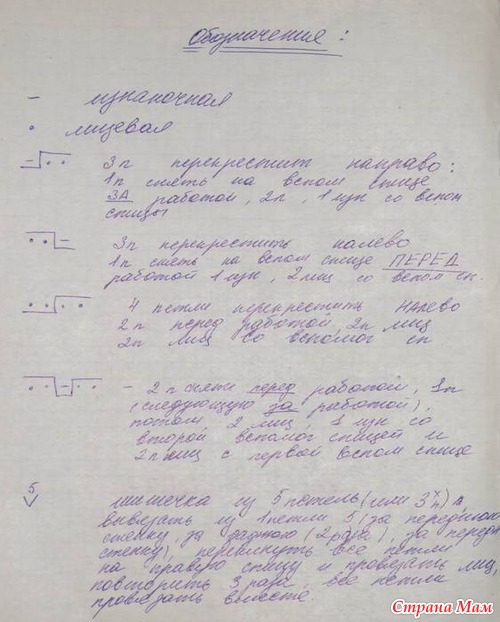 Обозначения:
– изнаночная
• лицевая
3п перекрестит направо:
1п снять на вспом спице
ЗА работой, 2л, 1изн со вспом
спицы
3п перекрестить налево
1п снять на вспом спице ПЕРЕД
работой 1изн, 2лиц со вспом сп.
4 петли перекрестить налево
2п перед работой, 2п лиц
2п лиц со вспомог сп
– 2п снять перед работой, 1п
(следующую за работой),
потом, 2лиц, 1изн со
второй вспомог спицей и
2п лиц с первой вспом спице
5
шишечка из 5 петель (или 3х)
вывязать из 1 петли 5 (за переднюю
стенку, за заднюю (2 раза), за передн
стенку), перекинуть все петли
на правую спицу и провязать лиц,
повторить 3 раза, все петли
провязать вместе.
Страна Мам